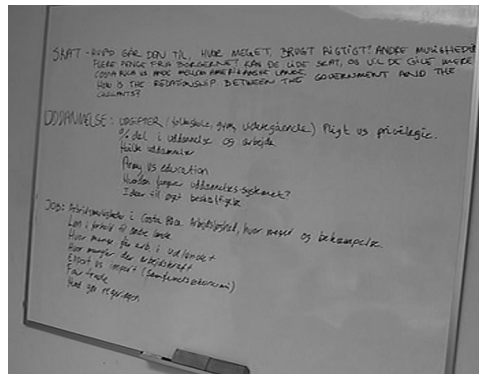 SKAT - HVAD GÅR DEN TIL, HVOR MEGET, BRUGT RIGTIGT? ANDRE MULIGHEDER
FLERE PENGE FRA BORGERNE? KAN DE LIDE SKAT, OG VIL DE GIVE MERE
COSTA RICA VS ANDE MELLOM AMERIKANSKE LANDE
HOW IS THE RELATIONSHIP BETWEEN THE GOVERNMENT AND THE
UDDANNELSE: UDGIFTER (folkeskole, gym, videregående) Pligt vs privilegie.
% del i uddannelse og arbejde
Hvilke uddannelser
Army vs education
Hvordan fungerer uddannelses systemet?
Ideer til øget beskæftigelse
JOB: Arbejdsmuligheder i Costa Rica Arbejdsløshed, hvor meget og bekæmpelse
Løn i forhold til andre lande
Hvor mange får arb. i udlandet
Hvor mangler der arbejdskraft
Export vs import (samfundsøkonomi)
Fair trade
Hvad gør regeringen